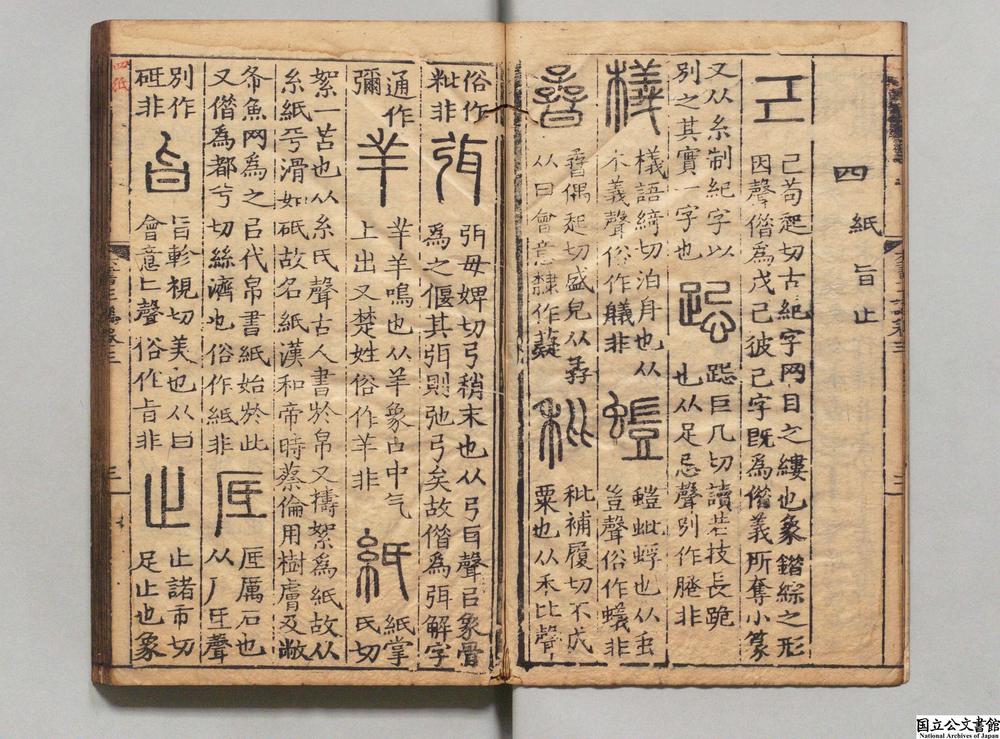 四　紙　旨　止
己
己苟起切古紀字网目之縷也象錯綜之形
因聲借爲戊己彼己字既爲借義所奪小篆
又从糸制紀字以
別之其實一字也
跽
跽巨几切讀若技長跪
也从足忌聲別作䠆非
檥
檥語綺切泊舟也从
木義聲俗作艤非
螘
螘蚍蜉也从虫
豈聲俗作蟻非
孴
孴偶起切盛皃从孨
从曰會意隸作薿
秕
秕補履切不成
粟也从禾比聲
俗作
粃非
弭
弭毋婢切弓稍末也从弓耳聲㠯象骨
爲之偃其弭則弛弓矣故借爲弭解字
通作
彌
羋
羋羊鳴也从羊象口中气
上出又楚姓俗作羊非
紙
紙掌
氏切
絮一苫也从糸氏聲古人書於帛又擣絮爲紙故从
糸紙平滑如砥故名紙漢和帝時蔡倫用樹膚及敝
布魚网爲之㠯代帛書紙始於此
又借爲都兮切絲濟也俗作紙非
厎
厎厲石也
从厂氐聲
別作
砥非
旨
旨軫視切美也从曰
會意匕聲俗作㫖非
止
止諸市切
足止也象
四紙
三
国立公文書館
National Archives of Japan